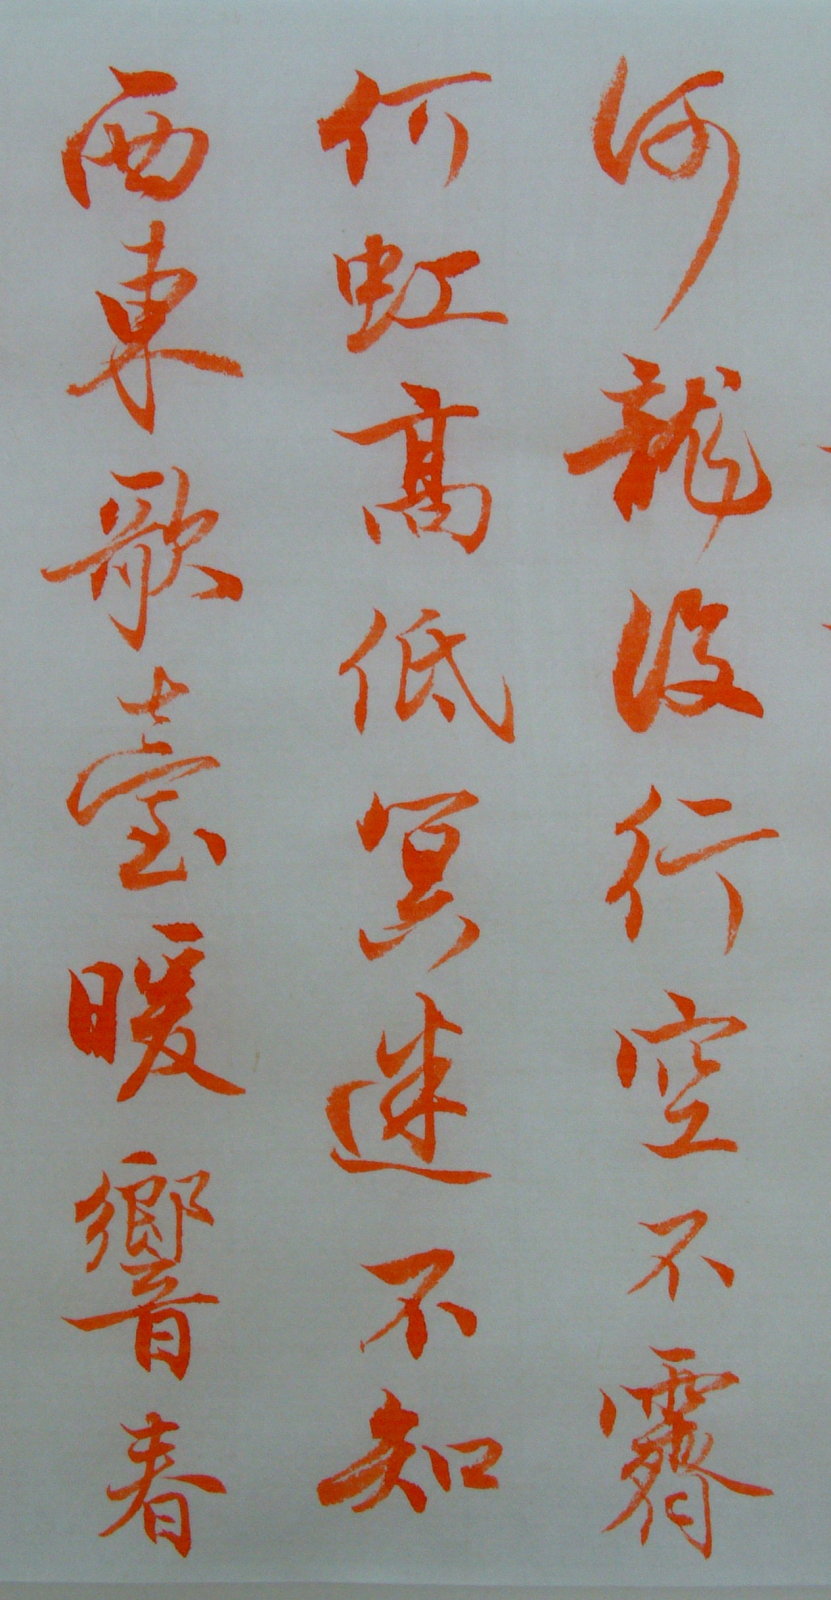 何龍復行空不霽
何虹高低冥迷不知
西東歌臺暖響春